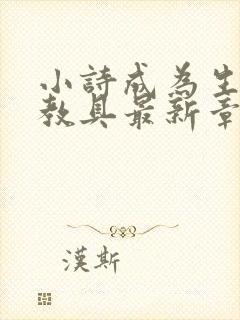 小詩成為生
教具最新章
漢斯